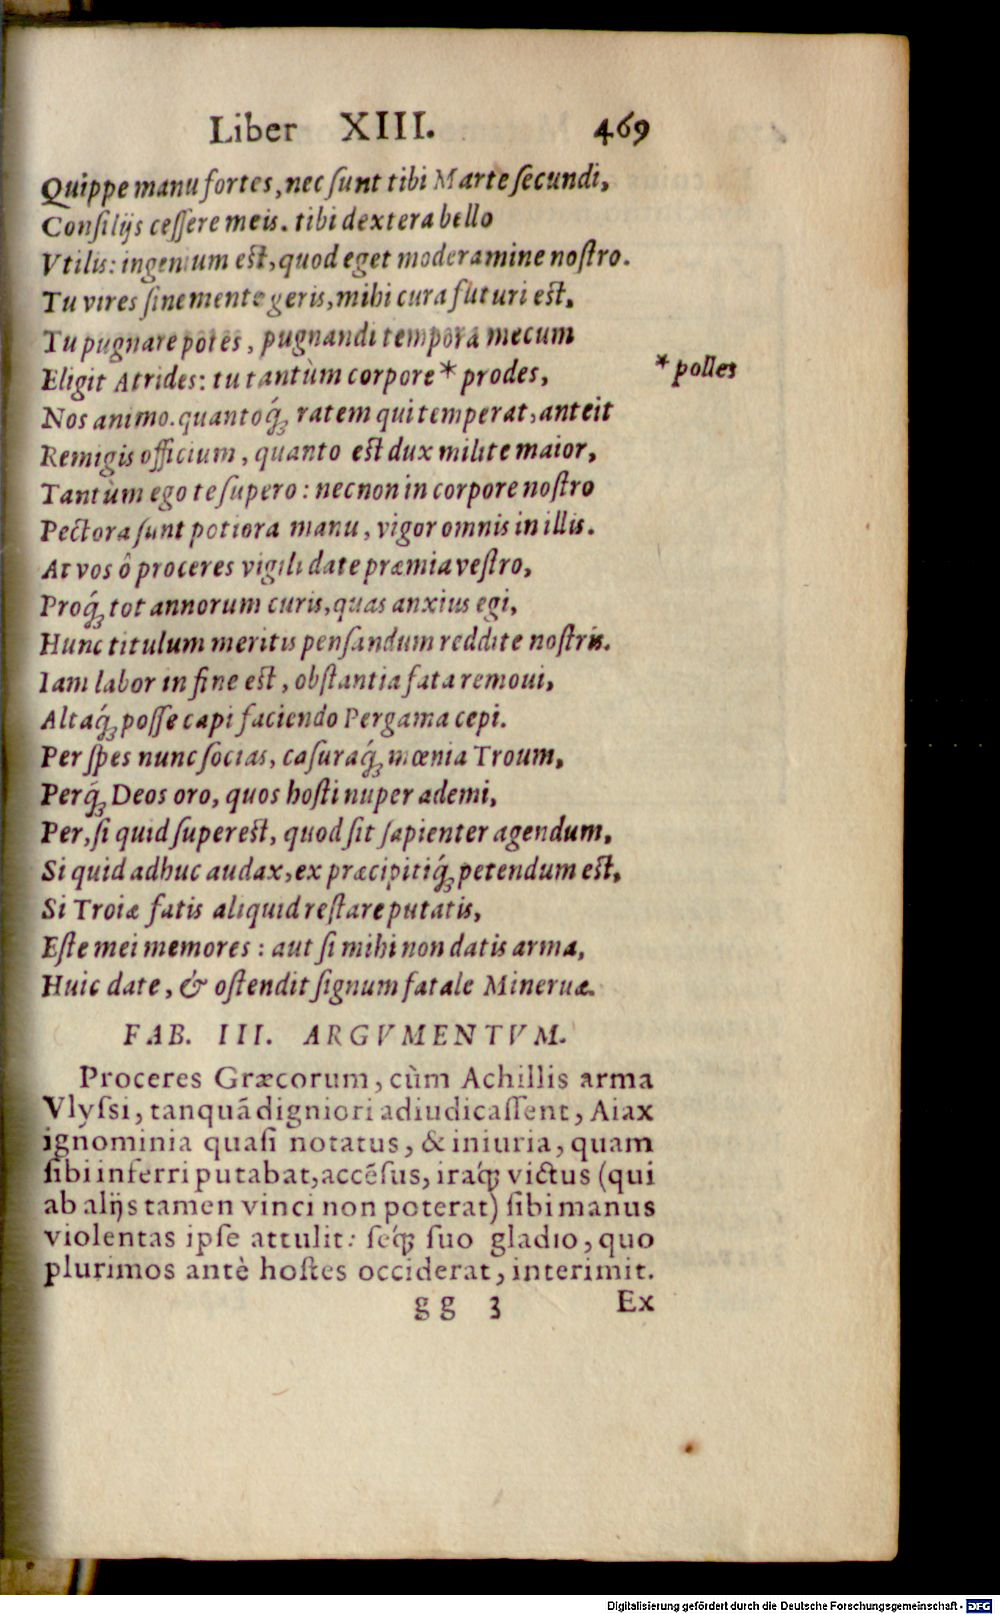 Liber XIII. 469
Quippe manu fortes, nec ſunt tibi Marte ſecundi,
Conſilijs ceſſere meis. tibi dextera bello
Vtilis: ingenium est, quod eget moderamine noſtro.
Tu vires ſine mente geris, mihi cura futuri est,
Tu pugnare potes, pugnandi tempora mecum
Eligit Atrides: tu tantùm corpore * prodes,
* polles
Nos animo. quantoq́ꝫ ratem qui temperat, anteit
Remigis officium, quanto est dux milite maior,
Tantùm ego te ſupero: nec non in corpore noſtro
Pectora ſunt potiora manu, vigor omnis in illis.
At vos ô proceres vigili date præmia veſtro,
Proq́ꝫ tot annorum curis, quas anxius egi,
Hunc titulum meritis penſandum reddite noſtris.
Iam labor in fine est, obſtantia fata remoui,
Altaq́ꝫ poſſe capi faciendo Pergama cepi.
Per ſpes nunc ſocias, caſuraq́ꝫ mœnia Troum,
Perq́ꝫ Deos oro, quos hoſti nuper ademi,
Per, ſi quid ſuperest, quod ſit ſapienter agendum,
Si quid adhuc audax, ex præcipitiq́ꝫ petendum est,
Si Troiæ fatis aliquid reſtare putatis,
Eſte mei memores: aut ſi mihi non datis arma,
Huic date, & oſtendit ſignum fatale Mineruæ.
FAB. III. ARGVMENTVM.
Proceres Græcorum, cùm Achillis arma
Vlyſsi, tanquã digniori adiudicaſſent, Aiax
ignominia quaſi notatus, & iniuria, quam
ſibi inferri putabat, accẽſus, iraq́ꝫ victus (qui
ab alijs tamen vinci non poterat) ſibi manus
violentas ipſe attulit: ſeq́ꝫ ſuo gladio, quo
plurimos antè hoſtes occiderat, interimit.
gg 3 Ex
Digitalisierung gefördert durch die Deutsche Forschungsgemeinschaft - DFG